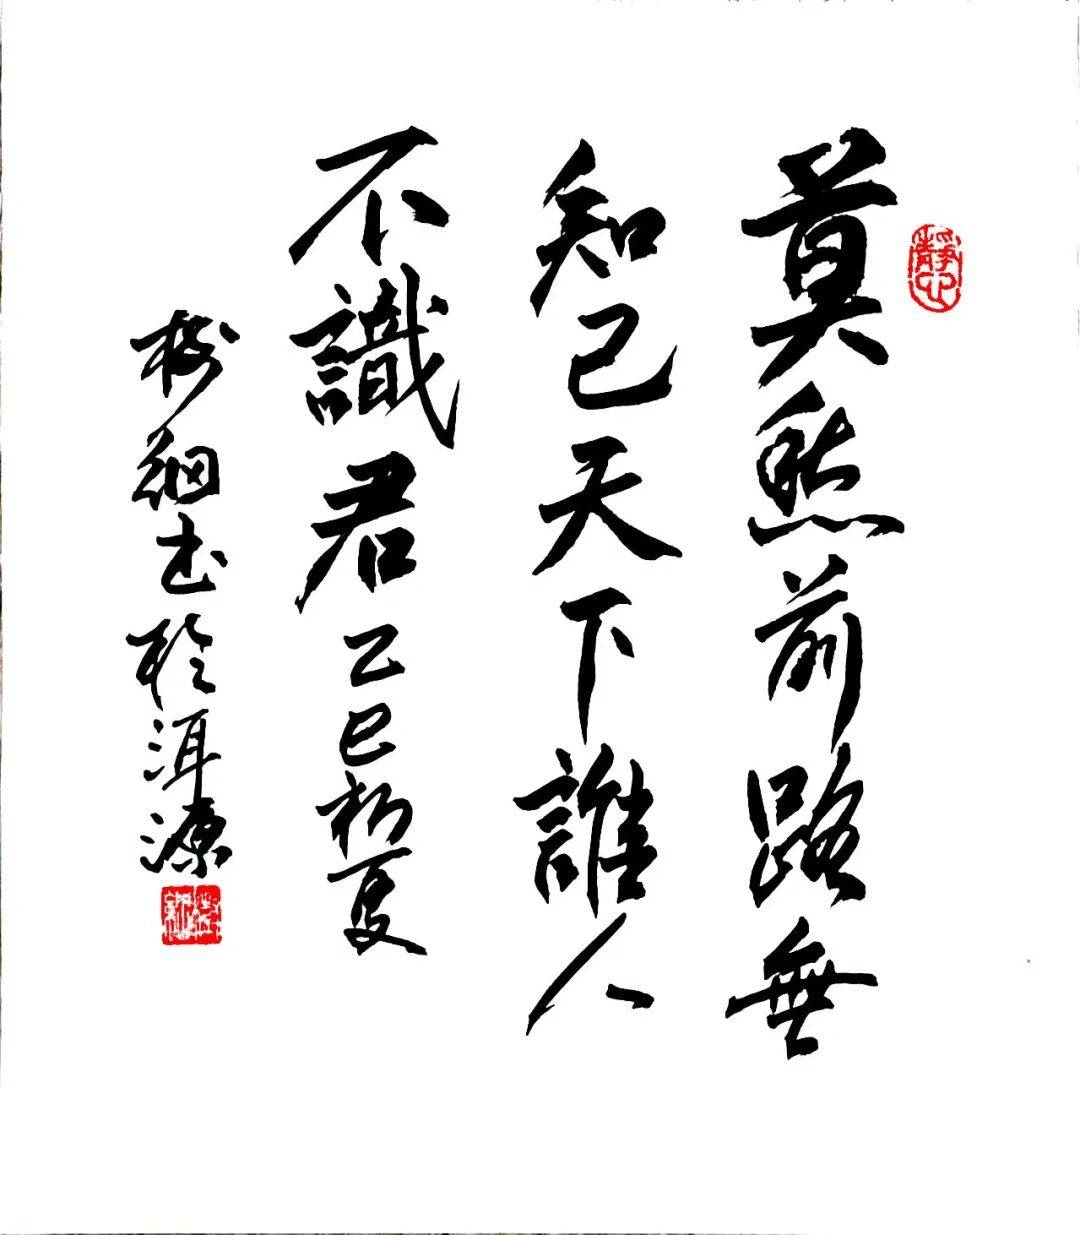 靜心
莫愁前路無
知己天下誰人
不識君 乙巳初夏
書於洱源